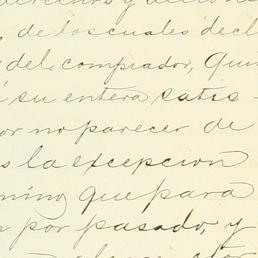 derechos y acciones
, de los cuales decl
del comprador, Qui
su entera satis-
or no parecer de
s la excepcion
mino que para
por pasado, y